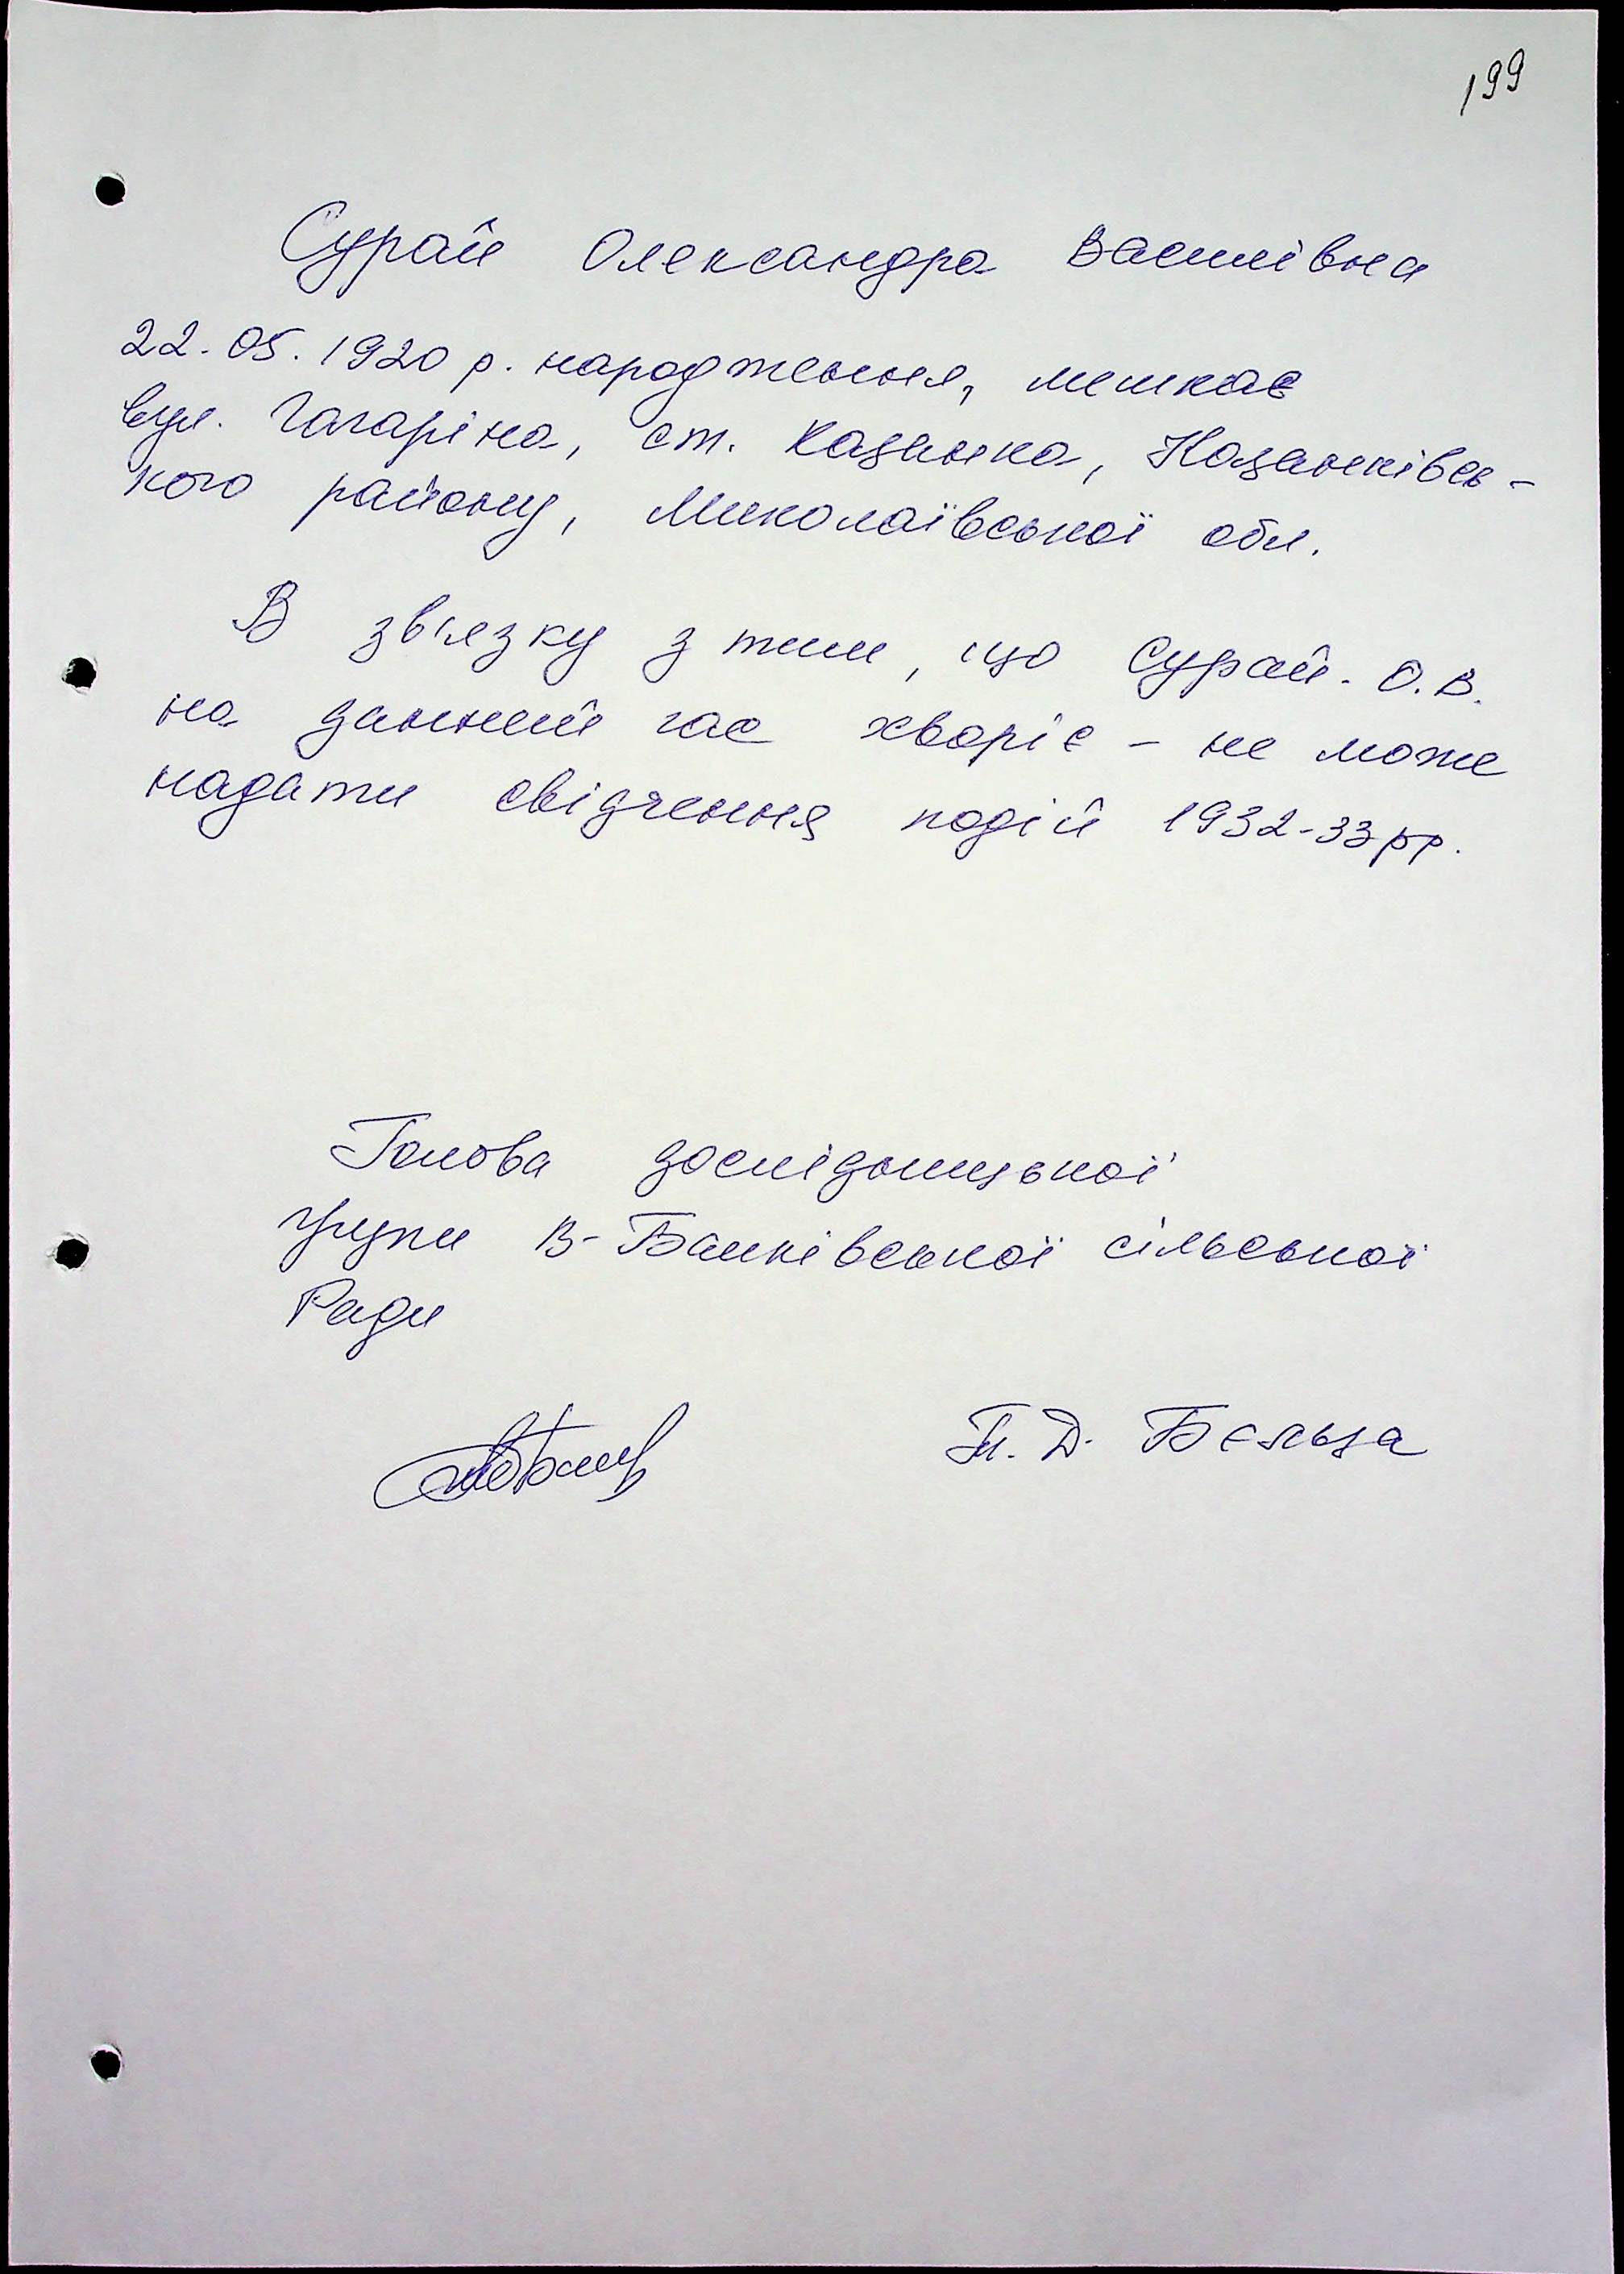 199
Сурай Олександра Василівна
22.05.1920 р. народження, мешкає
вул. Гагаріна, ст. Казанка, Казанківсь-
кого району, Миколаївської обл.
В зв'язку з тим, що Сурай. О.В.
на данний час хворіє - не може
надати свідчення подій 1932-33рр.
Голова дослідницької
групи В-Банківської сільської
Ради
П. Д. Бєльца